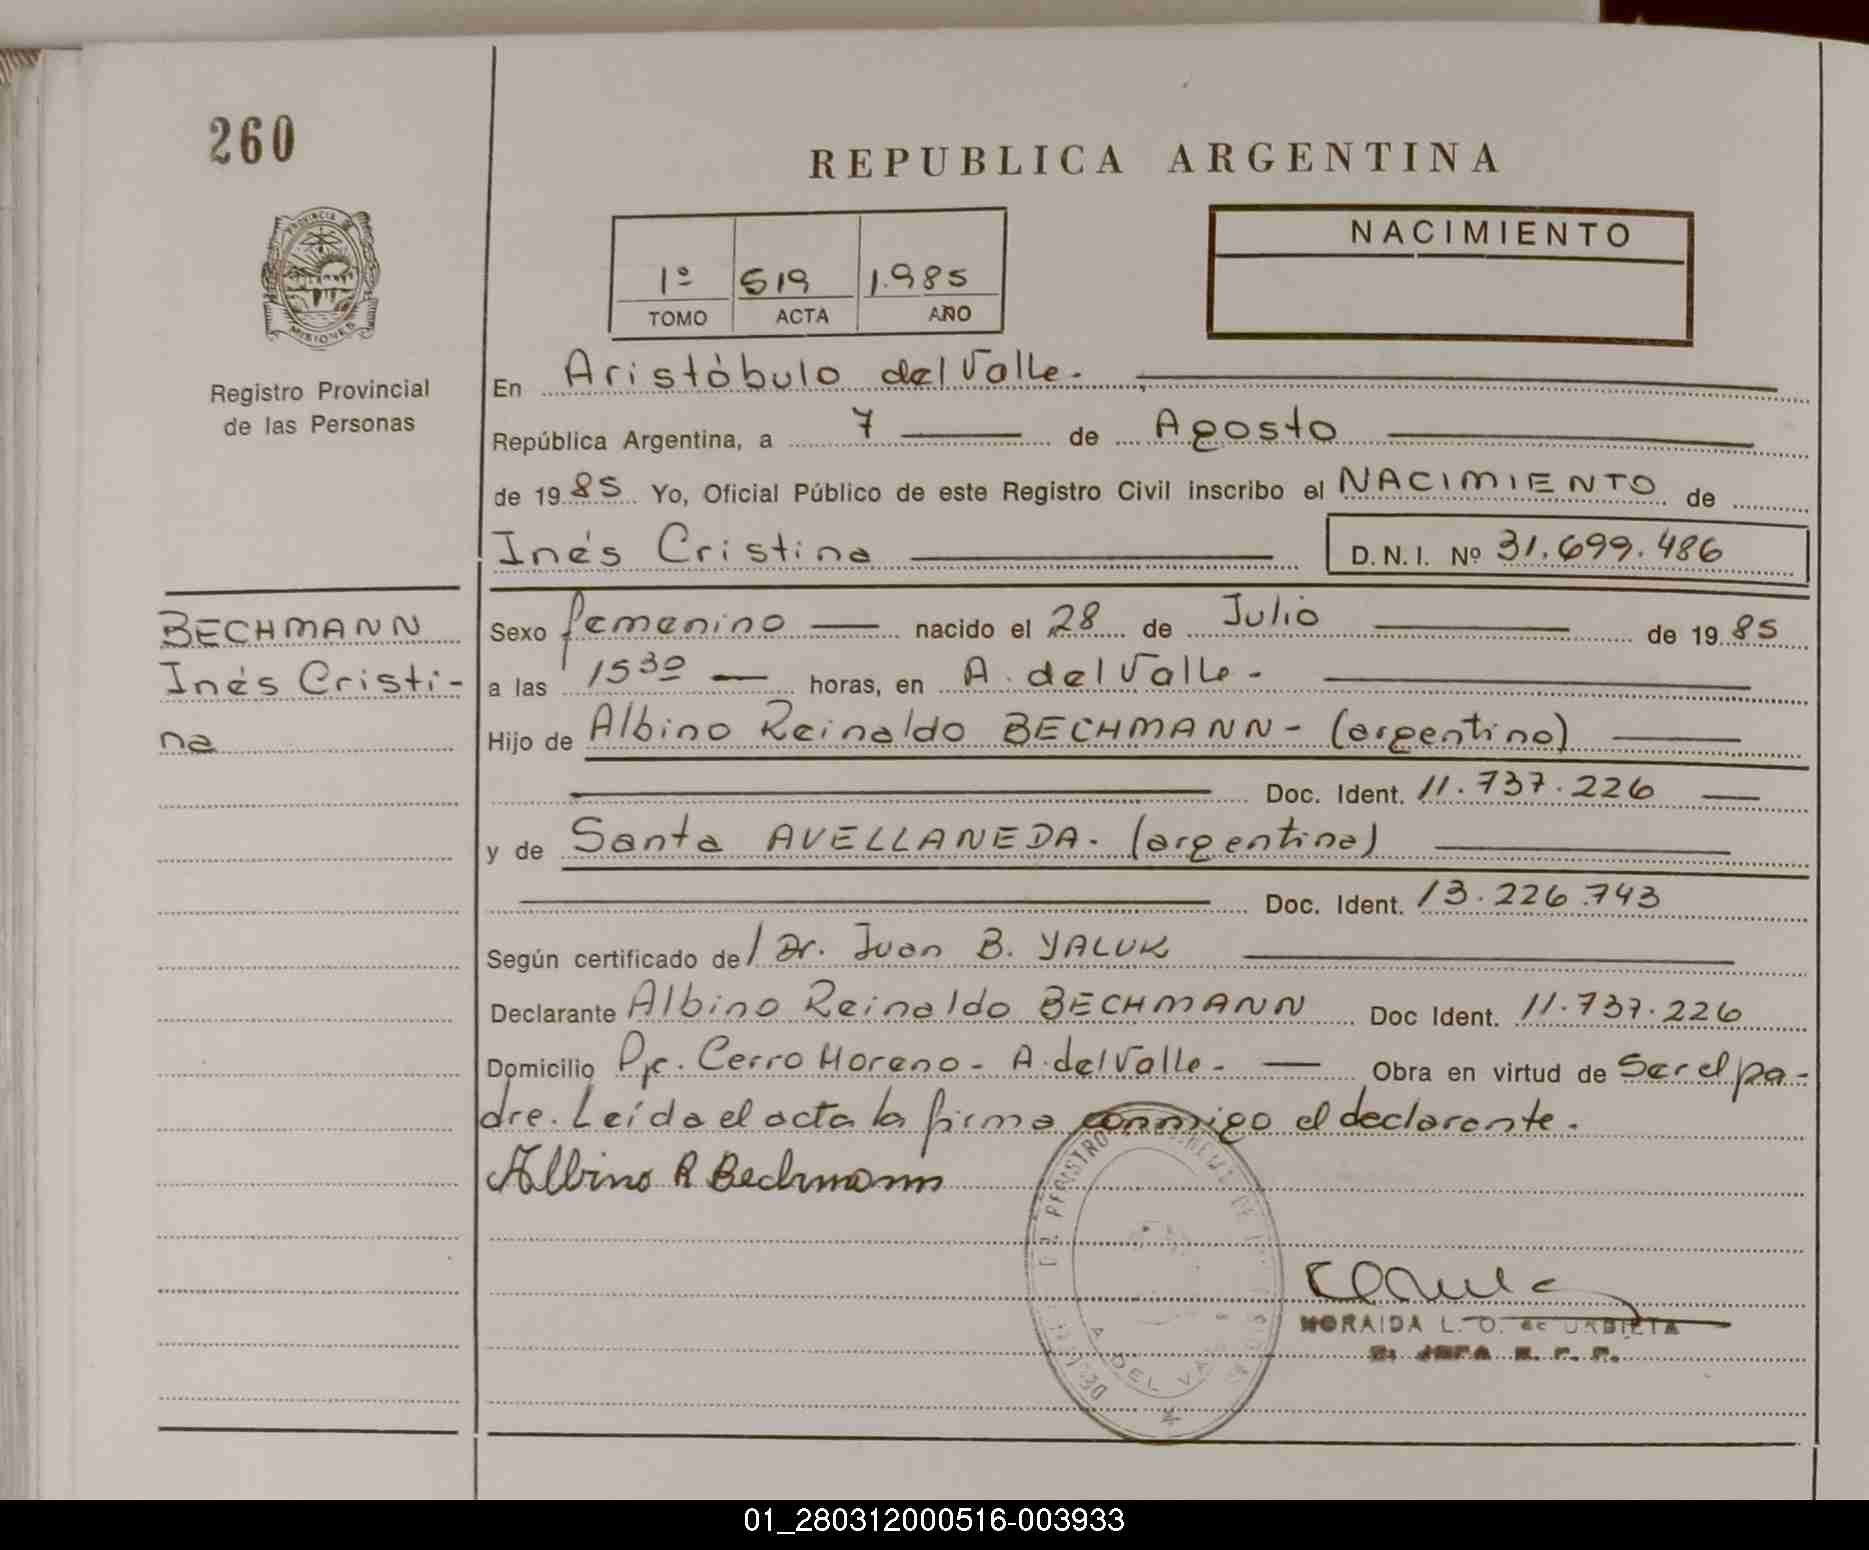 260
REPUBLICA ARGENTINA
PROVINCIA DE
MISIONES
Registro Provincial
de las Personas
1º 519 1.985
TOMO ACTA AÑO
NACIMIENTO
En Aristóbulo del Valle.
República Argentina, a 7 de Agosto
de 1985 Yo, Oficial Público de este Registro Civil inscribo el NACIMIENTO de
Inés Cristina D.N.I. Nº 31.699.486
BECHMANN
Inés Cristi-
na
Sexo femenino nacido el 28 de Julio de 1985
a las 15 30 horas, en A. del Valle -
Hijo de Albino Reinaldo BECHMANN - (argentino)
Doc. Ident. 11.737.226
y de Santa AVELLANEDA. (argentina)
Doc. Ident. 13.226.743
Según certificado de/ Dr. Juan B. YALUK
Declarante Albino Reinaldo BECHMANN Doc Ident. 11.737.226
Domicilio Pje. Cerro Moreno - A. del Valle - Obra en virtud de Ser el pa-
dre. Leída el acta la firma conmigo el declarante.
Albino R Bechmann
REGISTRO
A. DEL VA
MORAIDA L. O. de URBIETA
01_280312000516-003933